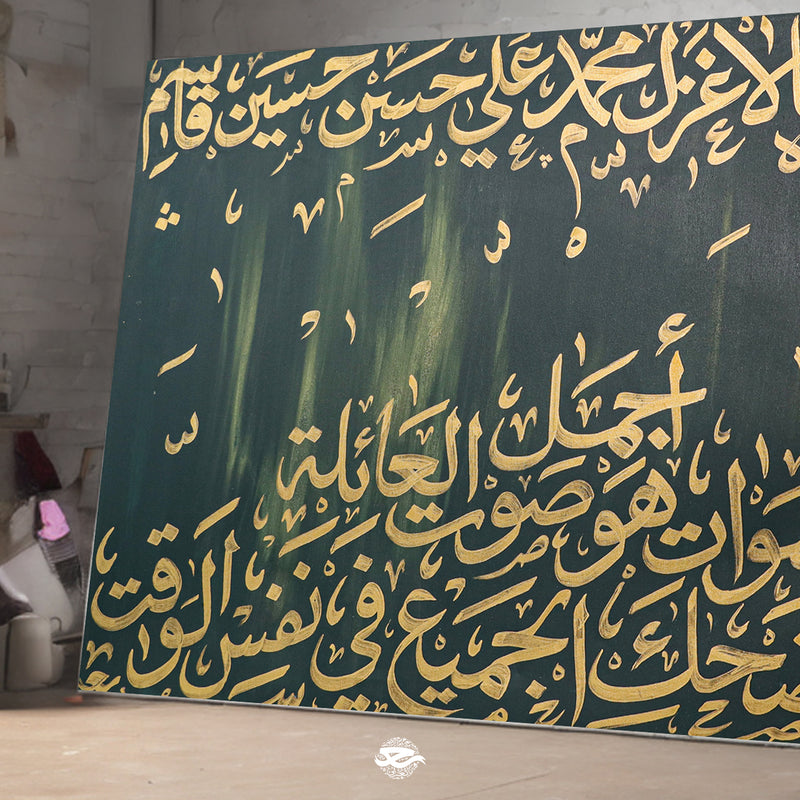 غزل محمد علي حسن حسين قاسم
أجمل
هو صوت العائلة
ضحك الجميع في نفس الوقت